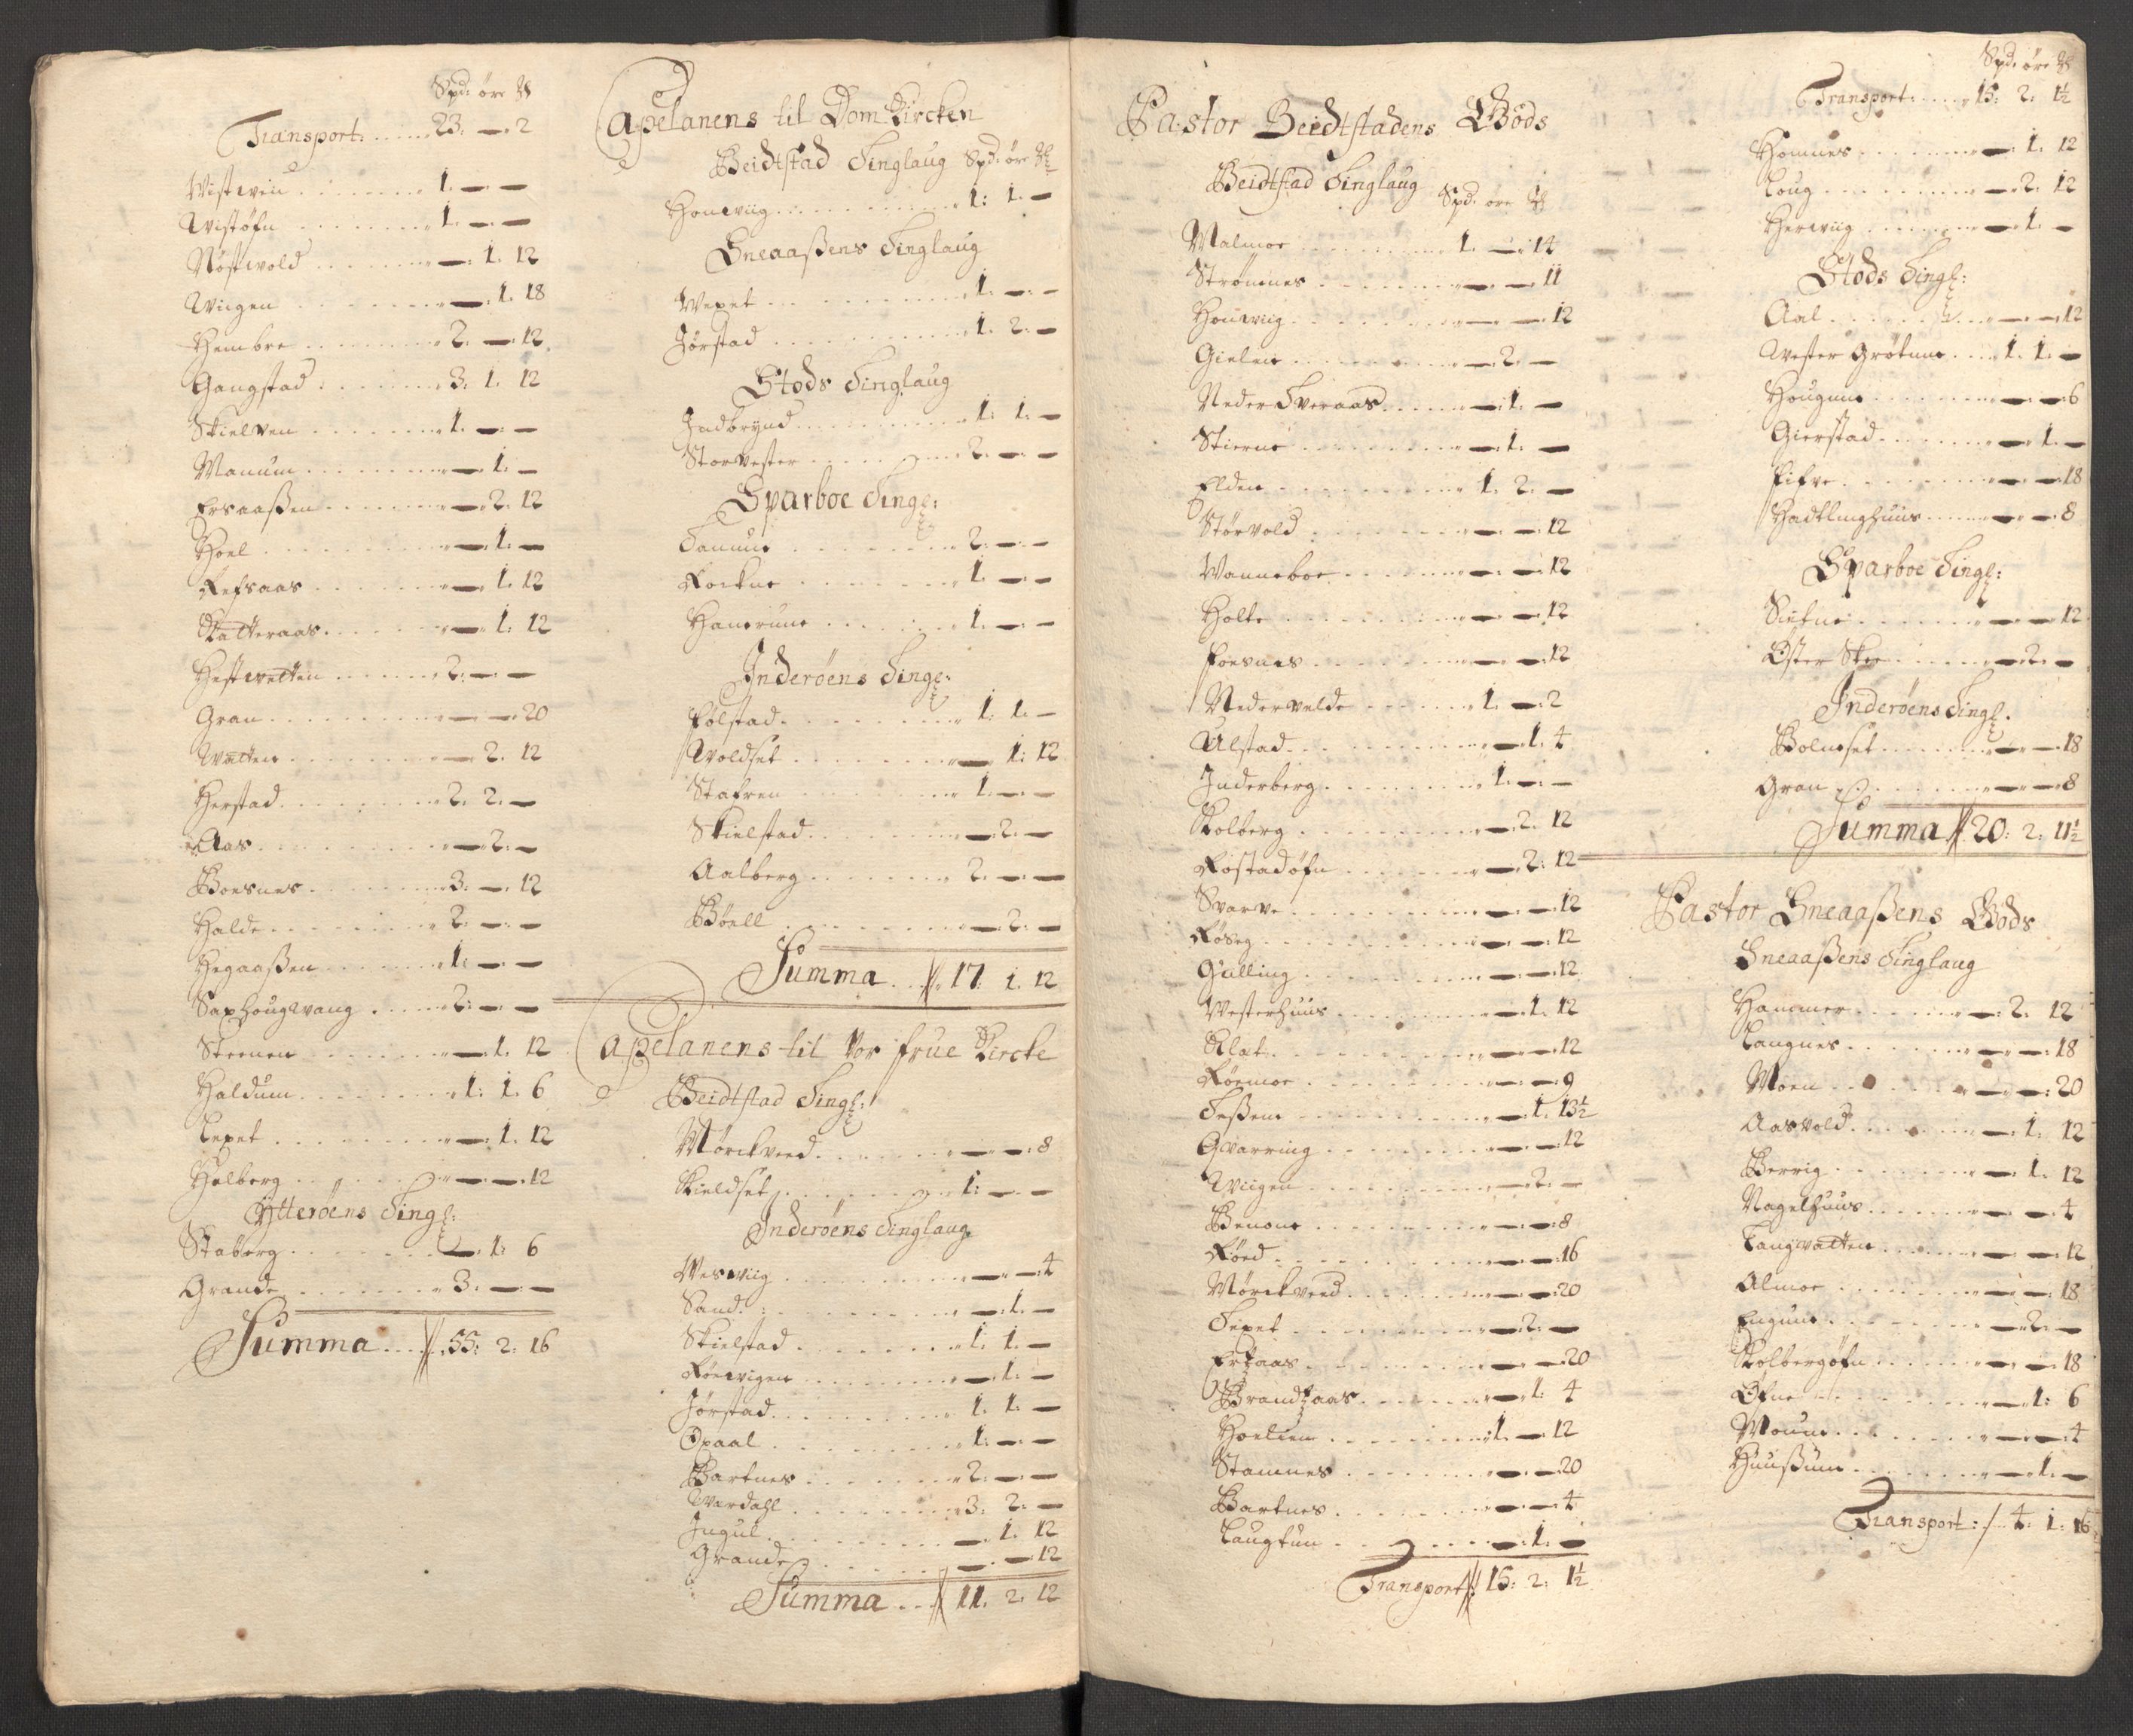 Spd: öre ℔
Transport: 23. — 2
Wistwin 1. — —
Wistøfn 1. — —
Nøstwold — 1. 12
Wiigen — 1. 18
Hembre 2. — 12
Gangstad 3. 1. 12
Skielven 1. — —
Manum — 1. —
Ersaaßen — 2. 12
Hoel — 1. —
Refsaas — 1. 12
Katteraas — 1. 12
Hestwetten 2. — —
Gran — — 20
Watten — 2. 12
Herstad 2. 2. —
Aas — 2. —
Boesnes 3. — 12
Halde 2. — —
Hegaaßen 1. — —
Saxhougwang 2. — —
Steenen — 1. 12
Haldum 1. 1. 6
Lexet — 1. 12
Holberg — — 12
Ytterøens Tingl:
Staberg — 1. 6
Grande 3. — —
Summa 55: 2: 16
Capelanens til Dom Kircken
Beidtstad Tinglaug Spd: öre ℔
Honwiig 1: 1. —
Sneaaßens Tinglaug
Wexet 1. — —
Jørstad 1. 2. —
Stods Tinglaug
Indbrynd 1. 1. —
Storvester 2. — —
Sparboe Tingl:
Tanum 2. — —
Rockne 1. — —
Hanerune 1. — —
Inderøens Tingl:
Følstad 1. 1. —
Woldset — 1: 12
Stafren 1. — —
Skielstad — 2. —
Aalberg 2. — —
Bøell — 2. —
Summa 17. 1. 12
Capelanens til Vor frue Kircke
Beidtstad Tingl:
Mørckved — — 8
Kieldset 1: — —
Inderøens Tinglaug
Weswiig — — 4
Sand — 1. —
Skielstad 1. 1. —
Røewigen — 1. —
Jørstad 1. 1. —
Opaal 1. — —
Bartnes 2. — —
Wardahl 3. 2. —
Ingul — 1. 12
Grande — — 12
Summa 11. 2. 12
Pastor Beidtstadens Gods
Beidtstad Tinglaug Spd. öre ℔
Malmoe 1. — 14
Strømnes — — 11
Honwiig — — 12
Gielen — 2. —
Neder Tveraas — 1. —
Stierne — 1. —
Elden 1. 2. —
Størvold — — 12
Wanneboe — — 12
Holte — — 12
Foesnes — — 12
Nedervelde 1. — 2
Ulstad — 1. 4
Inderberg 1. — —
Kolberg — 2. 12
Rostadøfn — 2: 12
Svarve — — 12
Røseg — — 12
Gulling — — 12
Westerhuus — 1. 12
Klat — — 12
Røemoe — — 9
Teßem — 1. 13½
Gwarning — — 12
Wiigen — 2. —
Benone — — 8
Røed — — 16
Mørckved — — 20
Texet — 2. —
Ertzaas — — 20
Brandtzaas — 1. 4
Hoelien 1. — 12
Stamnes — — 20
Bartnes — — 4
Laugtun — 1. —
Transport 15: 2: 1½
Spd: öre ℔
Transport: 15: 2. 1½
Homnes — 1. 12
Loug — 2. 12
Herwiig — 1. —
Stods Tingl:
Aal — — 12
Wester Grøtum 1. 1. —
Hougum — — 6
Gierstad — 1. —
Fifve — — 18
Hadklinghuus — — 8
Sparboe Tingl:
Sietne — — 12
Øster Skey — 2. —
Inderøens Tingl.
Bolneset — — 18
Gran — — 8
Summa 20: 2: 11½
Pastor Sneaaßens Gods
Sneaaßens Tinglaug
Hammer — 2. 12
Langnes — — 18
Moen — — 20
Aasvold — 1. 12
Berrig — 1. 12
Nagelhuus — — 4
Langwatten — — 12
Almoe — — 18
Engum — 2. —
Kolbergøfn — — 18
Øfne — 1: 6
Moum — — 4
Huußum — 1. —
Transport: 4: 1: 16